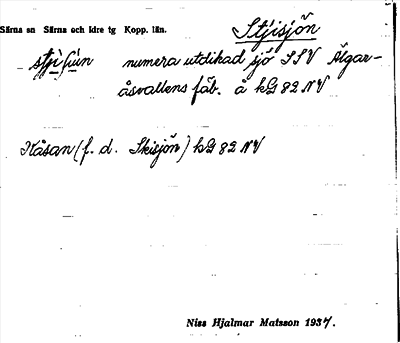 Stjisjön
Särna sn Särna och Idre tg Kopp. län.
numera utdikad sjö SSV Älgar-
åsvallens fäb. å kG 82 NV
Kåsan (f. d. Skisjön) kG 82 NV
Niss Hjalmar Matsson 1937.